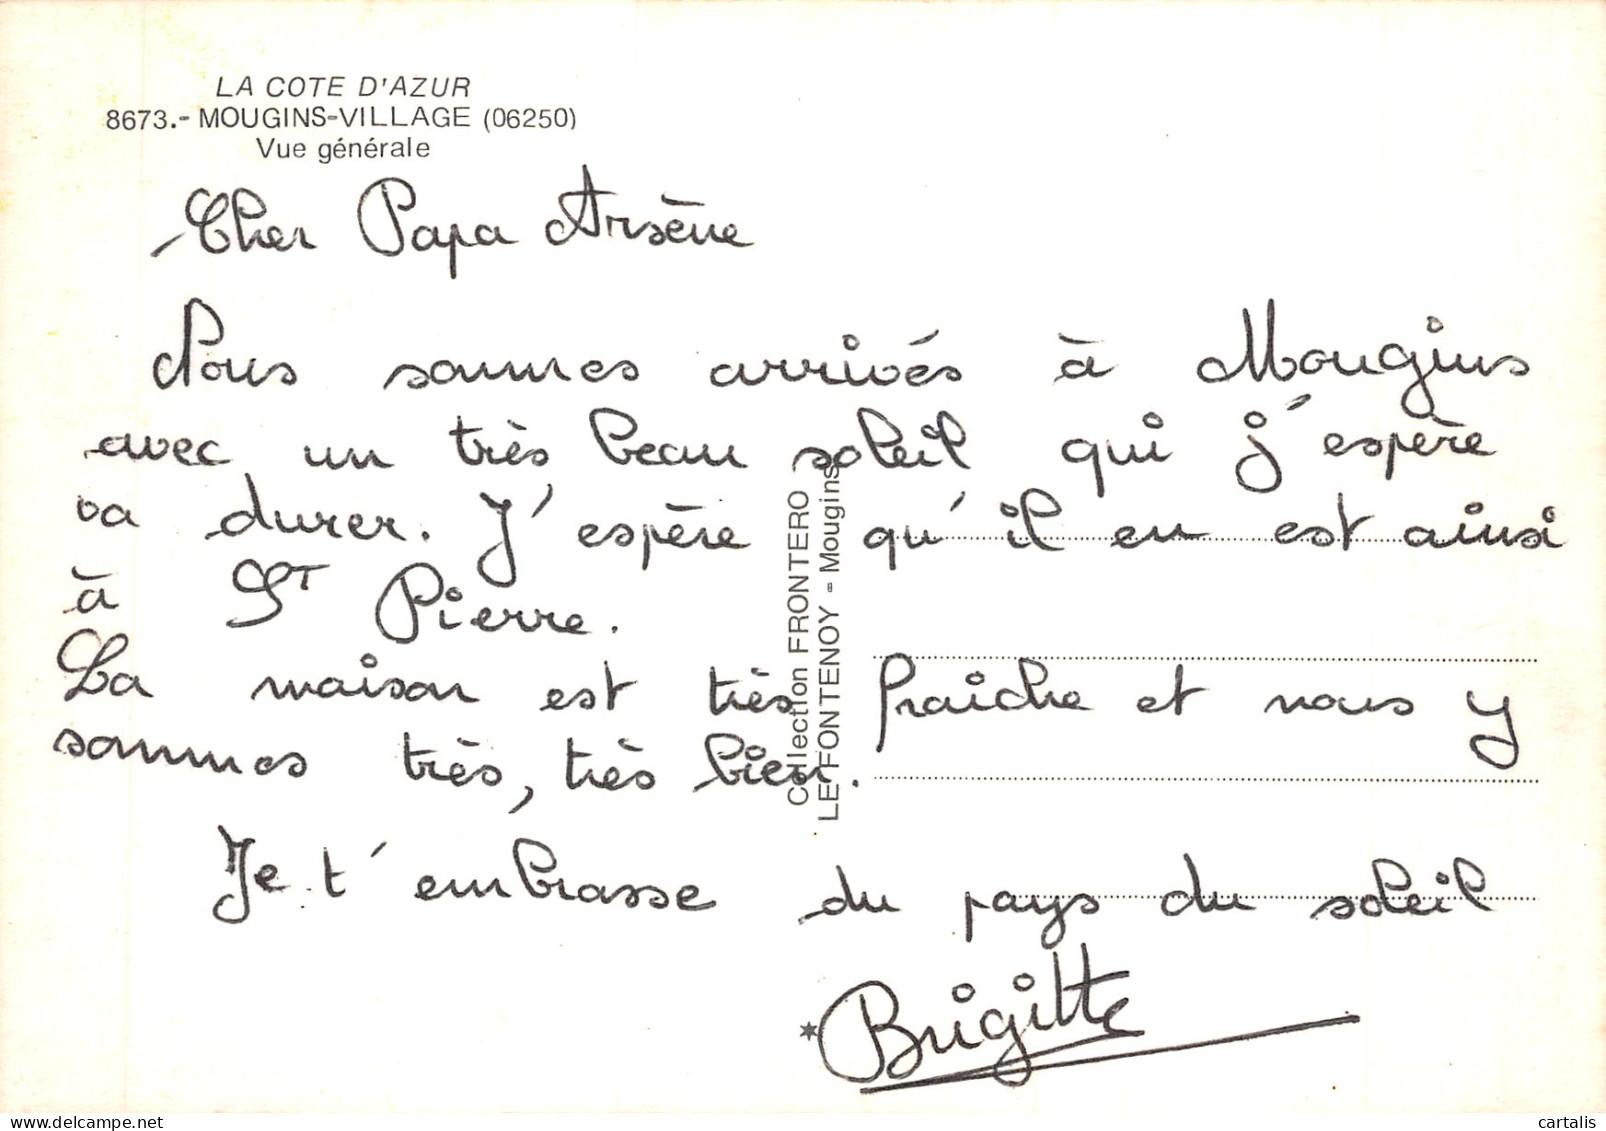 LA COTE D'AZUR
8673.- MOUGINS-VILLAGE (06250)
Vue générale
Cher Papa Arsène
Nous sommes arrivés à Mougins
avec un très beau soleil qui j'espère
va durer. J'espère qu'il en est ainsi
à St Pierre.
La maison est très fraiche et nous y
sommes très, très bien.
Je t'embrasse du pays du soleil
Brigitte
Collection FRONTERO
LE FONTENOY - Mougins
cartalis